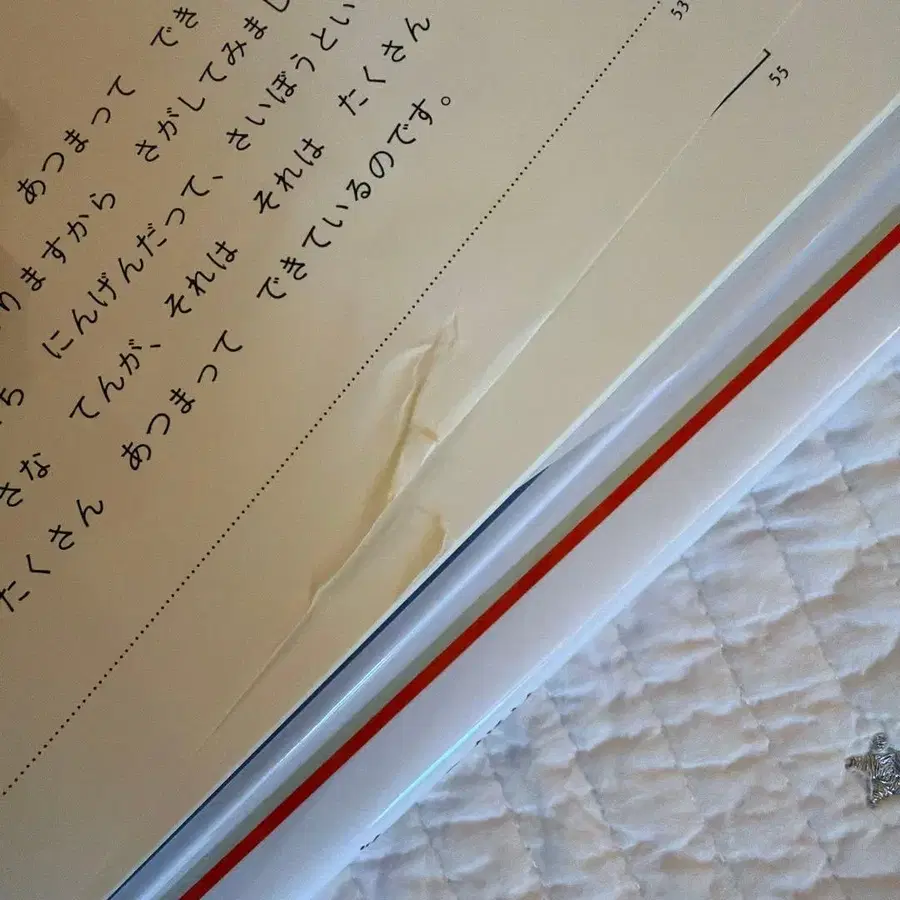 あつまって でき
りますから さがしてみまし
ち にんげんだって、さいぼうとい
さな てんが、それは それは たくさん
たくさん あつまって できているのです。
53
55